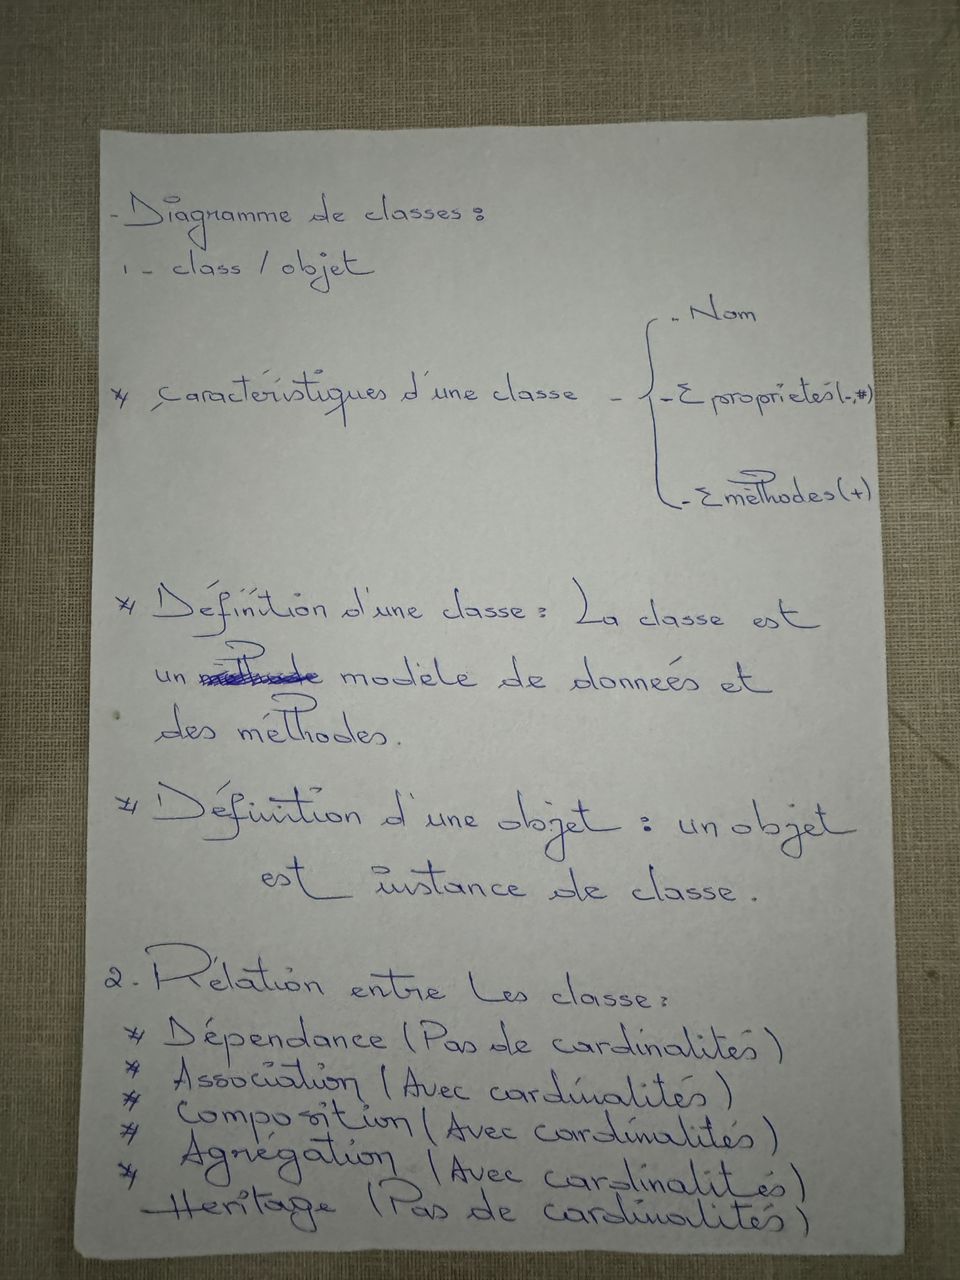 - Diagramme de classes :
1 - class / objet
- Nom
* caractéristiques d'une classe - { - Σ proprietés (-, #)
- Σ méthodes (+)
* Définition d'une classe : La classe est
un modèle de données et
des méthodes.
* Définition d'une objet : un objet
est instance de classe.
2. Rélation entre Les classe :
* Dépendance (Pas de cardinalités)
* Association (Avec cardinalités)
* Composition (Avec cardinalités)
* Agrégation (Avec cardinalités)
* Heritage (Pas de cardinalités)